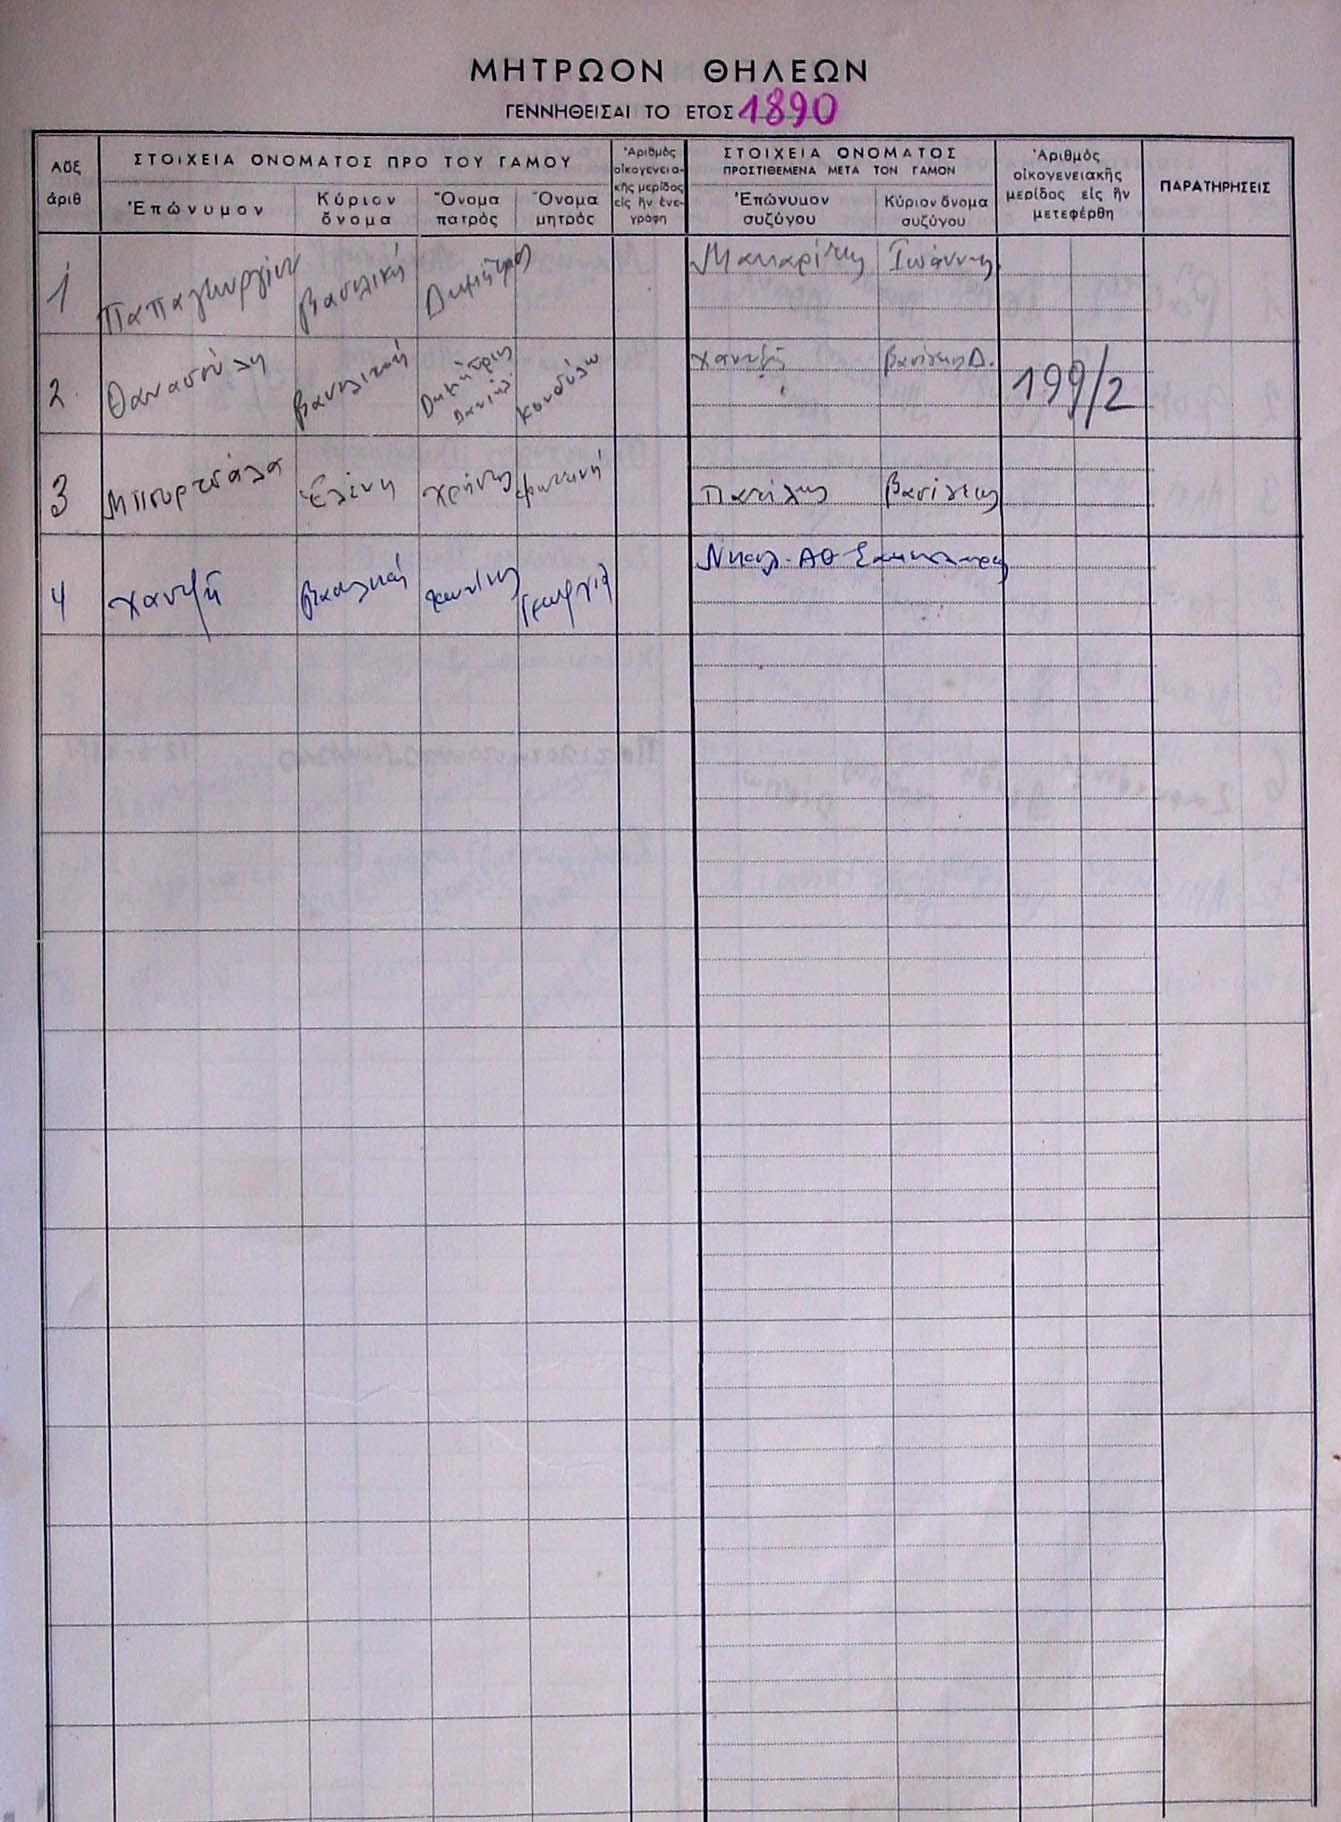 ΜΗΤΡΩΟΝ ΘΗΛΕΩΝ
ΓΕΝΝΗΘΕΙΣΑΙ ΤΟ ΕΤΟΣ 1890
Αὔξ ἀριθ
ΣΤΟΙΧΕΙΑ ΟΝΟΜΑΤΟΣ ΠΡΟ ΤΟΥ ΓΑΜΟΥ
Ἐπώνυμον
Κύριον ὄνομα
Ὄνομα πατρός
Ὄνομα μητρός
Ἀριθμός οἰκογενειακῆς μερίδος εἰς ἣν ἐνεγράφη
ΣΤΟΙΧΕΙΑ ΟΝΟΜΑΤΟΣ
ΠΡΟΣΤΙΘΕΜΕΝΑ ΜΕΤΑ ΤΟΝ ΓΑΜΟΝ
Ἐπώνυμον συζύγου
Κύριον ὄνομα συζύγου
Ἀριθμός οἰκογενειακῆς μερίδος εἰς ἣν μετεφέρθη
ΠΑΡΑΤΗΡΗΣΕΙΣ
1 Παπαγεωργίου Βασιλική Δημήτριος Μακαρίτης Ιωάννης
2 Θανασούλη Βασιλική Δημήτριος Κονδύλω Χαντζῆς Βασίλης Δ. 199/2
3 Μπουρτσάλα Ἑλένη Χρήστος Φωτεινή Πατίλης Βασίλειος
4 Χαντζῆ Βασιλική Γεωργία